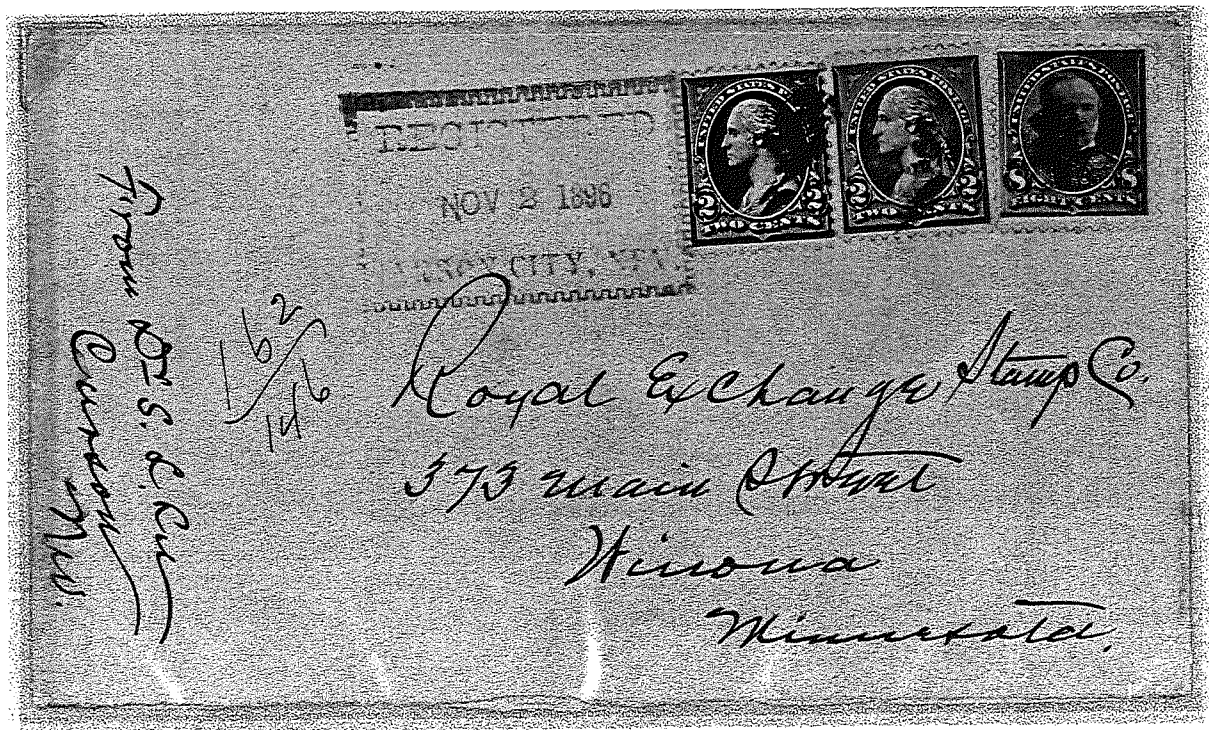 REGISTERED
NOV 2 1896
CITY, NEV.
UNITED STATES POSTAGE
2 2
TWO CENTS
UNITED STATES POSTAGE
2 2
TWO CENTS
UNITED STATES POSTAGE
8 8
EIGHT CENTS
From Dr S. L.
Carson
Nev.
1162
1546
Royal Exchange Stamp Co.
373 Main Street
Winona
Minnesota.